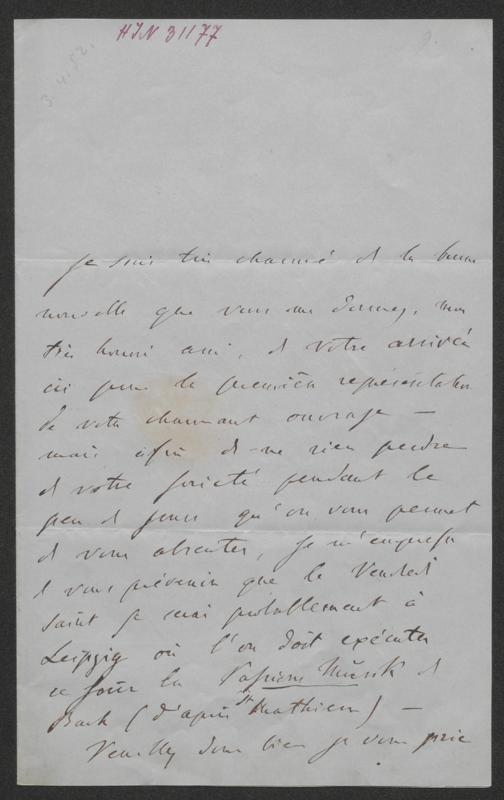 HIN 31177
3.4.52.
Je suis très charmé de la bonne
nouvelle que vous me donnez, mon
très honoré ami, de votre arrivée
ici pour la première représentation
de votre charmant ouvrage —
mais afin de ne rien perdre
de votre société pendant le
peu de jours qu'on vous permet
de vous absenter, je m'empresse
de vous prévenir que le Vendredi
saint je serai probablement à
Leipzig où l'on doit exécuter
ce jour la Passions Musik de
Bach (d'après St Mathieu) —
Veuillez donc bien je vous prie